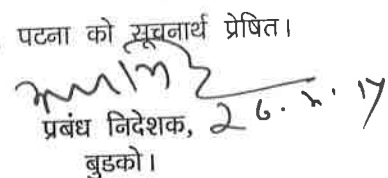 पटना को सूचनार्थ प्रेषित।
प्रबंध निदेशक,
बुडको।